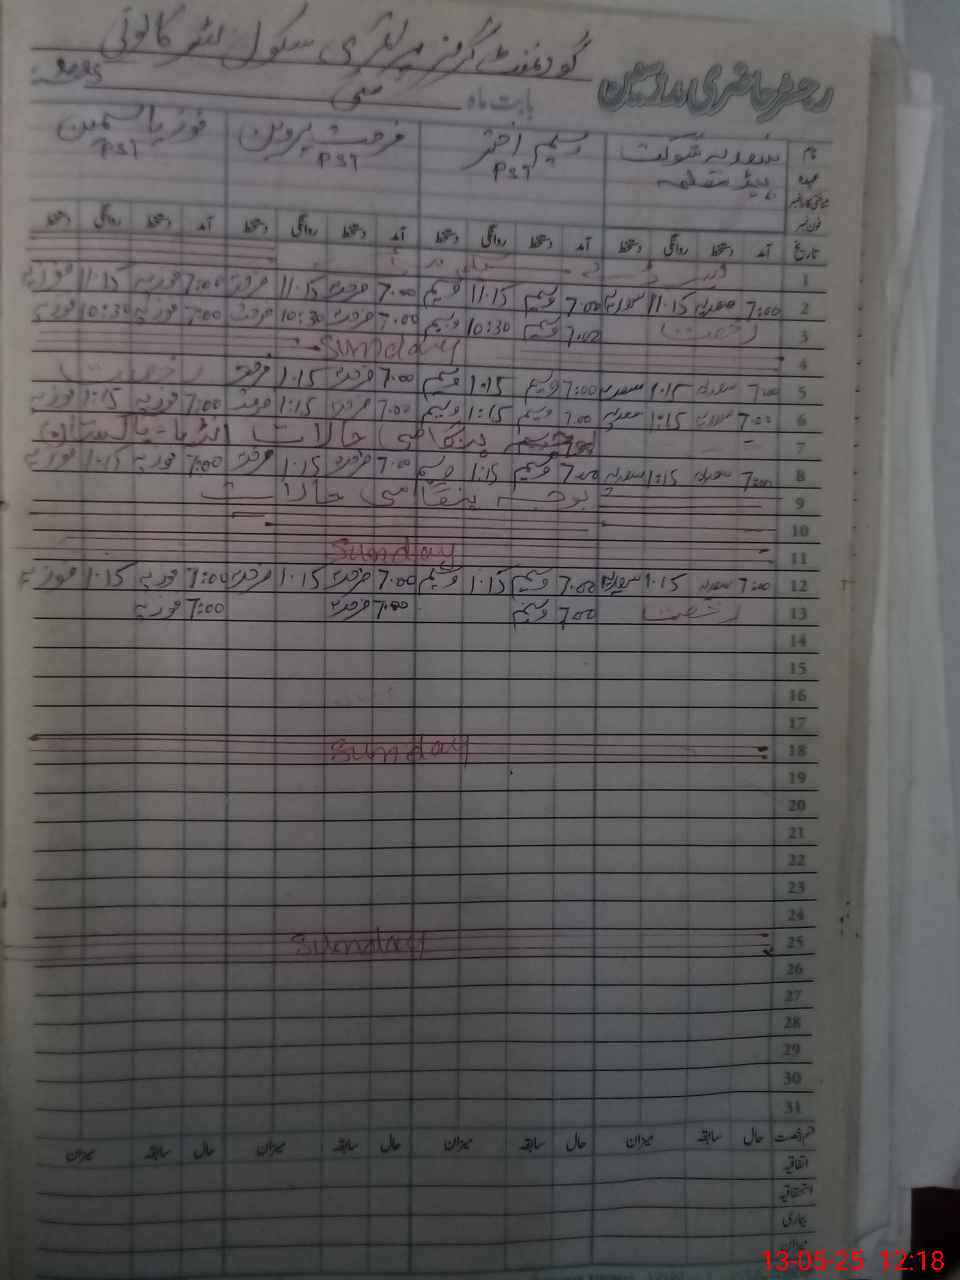 گورنمنٹ گرلز پرائمری سکول
رجسٹر حاضری مدرسین بابت ماہ مئی 2025
نام سعدیہ شوکت وسیم اختر فرحت پروین فوزیہ یاسمین
عہدہ ہیڈ معلمہ PST PST PST
فون نمبر
تاریخ آمد دستخط روانگی دستخط آمد دستخط روانگی دستخط آمد دستخط روانگی دستخط آمد دستخط روانگی دستخط
1
2 7:00 سعدیہ 11.15 سعدیہ 7.00 وسیم 11.15 وسیم 7.00 فرحت 11.15 فرحت 7:00 فوزیہ 11.15 فوزیہ
3 رخصت 7.00 وسیم 10:30 وسیم 7.00 فرحت 10:30 فرحت 7:00 فوزیہ 10:30 فوزیہ
4 Sunday
5 7.00 سعدیہ 1.15 سعدیہ 7:00 وسیم 1.15 وسیم 7.00 فرحت 1.15 فرحت رخصت
6 7.00 سعدیہ 1:15 سعدیہ 7.00 وسیم 1:15 وسیم 7.00 فرحت 1:15 فرحت 7:00 فوزیہ 1:15 فوزیہ
7 ہنگامی حالات انڈیا - پاکستان
8 7:00 سعدیہ 1:15 سعدیہ 7.00 وسیم 1:15 وسیم 7.00 فرحت 1.15 فرحت 7:00 فوزیہ 1.15 فوزیہ
9 بوجہ ہنگامی حالات
10
11 Sunday
12 7:00 سعدیہ 1.15 سعدیہ 7.00 وسیم 1.15 وسیم 7.00 فرحت 1.15 فرحت 7:00 فوزیہ 1.15 فوزیہ
13 رخصت 7.00 وسیم 7.00 فرحت 7:00 فوزیہ
14
15
16
17
18 Sunday
19
20
21
22
23
24
25 Sunday
26
27
28
29
30
31
قسم رخصت حال سابقہ میزان حال سابقہ میزان حال سابقہ میزان حال سابقہ میزان
اتفاقیہ
استحقاقیہ
بیماری
میزان
13-05-25 12:18